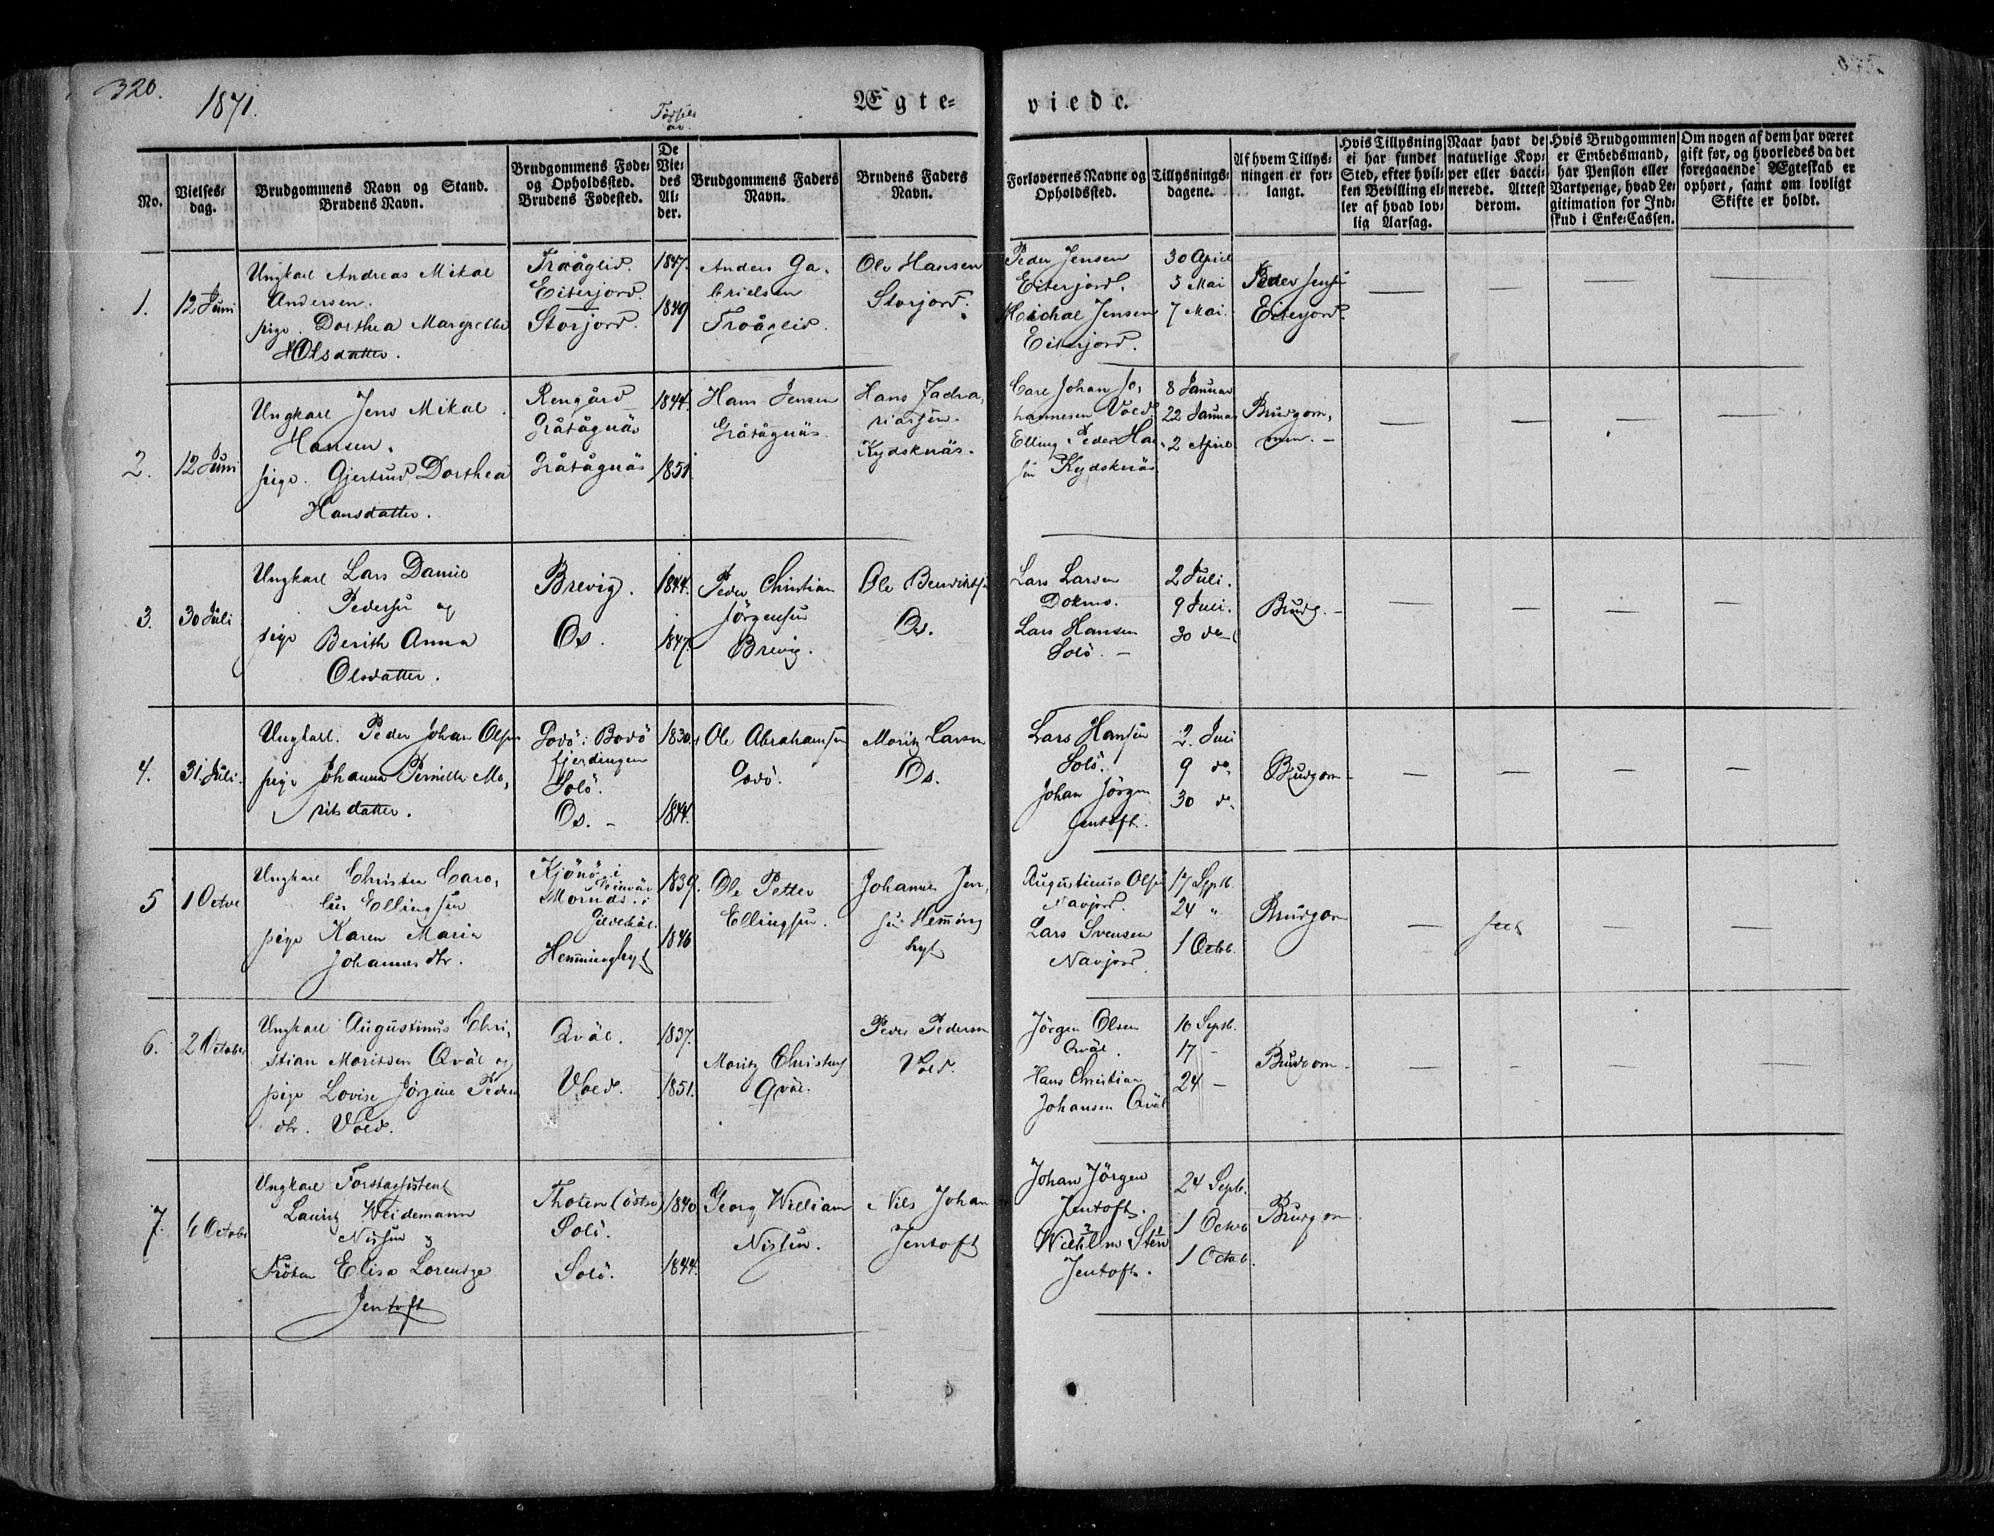 320.
1871.
Ægte-
viede.
Fødsels
aar.
No.
Vielses-
dag.
Brudgommens Navn og Stand.
Brudens Navn.
Brudgommens Føde-
og Opholdssted.
Brudens Fødested.
De
Vie-
des
Al-
der.
Brudgommens Faders
Navn.
Brudens Faders
Navn.
Forlovernes Navne og
Opholdssted.
Tillysnings-
dagene.
Af hvem Tillys-
ningen er for-
langt.
Hvis Tillysning
ei har fundet
Sted, efter hvil-
ken Bevilling el-
ler af hvad lov-
lig Aarsag.
Naar havt de
naturlige Kop-
per eller vacci-
nerede. Attest
derom.
Hvis Brudgommen
er Embedsmand,
har Pension eller
Vartpenge, hvad Le-
gitimation for Ind-
skud i Enke-Cassen.
Om nogen af dem har været
gift før, og hvorledes da det
foregaaende Ægteskab er
ophørt, samt om lovligt
Skifte er holdt.
1.
12 Juni
Ungkarl Andreas Mikal
Andersen.
pige. Dorthea Margrethe
Olsdatter.
Troåglid.
Eiterjord.
Storjord.
1847.
1849
Anders Ga-
brielsen
Troåglid.
Ole Hansen
Storjord.
Peder Jensen
Eiterjord.
Michal Jensen
Eiterjord.
30 April
5 Mai
7 Mai.
Peder Jensen
Eiterjord.
2.
12 Juni
Ungkarl Jens Mikal
Hansen.
pige. Gjertrud Dorthea
Hansdatter.
Rengård
Gråtågnäs
Gråtågnäs
1844.
1851
Hans Jensen
Gråtågnäs.
Hans Zacha-
riassen.
Kydsknäs.
Carl Johan Jo-
hannesen Vold.
Elling Peder Han-
sen Kydsknäs
8 Januar
22 Januar
2 April
Brudgom-
men.
3.
30 Juli
Ungkarl Lars Danie
Pedersen og
pige Berith Anna
Olsdatter.
Brevig.
Os.
1844.
1847.
Peder Christian
Jörgensen
Brevig.
Ole Bendiktsen
Os.
Lars Larsen
Dokmo.
Lars Hansen
Solö.
2 Juli.
9 Juli.
30 do
Brudg.
4.
31 Juli.
Ungkarl. Peder Johan Olsen
pige Johanna Pernille Mo-
ritsdatter.
Godö i Bodö
fjerdingen
Solö.
Os.
1830.
1844.
Ole Abrahamsen
Godö.
Moritz Larsen
Os.
Lars Hansen
Solö.
Johan Jörgen
Jentoft.
2. Juli
9 do
30 do
Brudgom
5
1 Octbr
Ungkarl Christen Caro-
lius Ellingsen
pige Karen Maria
Johannes dtr.
Kjönö i
Gildeskål.
Hemminghyt
1839.
1846
Ole Petter
Ellingsen.
Johannes Jen-
sen Hemming
hyt
Augustinus Olsen
Navjord.
Lars Svensen
Navjord
17 Septb.
24 "
1 Octob.
Brudgom
6.
2 October
Ungkarl Augustinus Chri-
stian Moritsen Qväl og
pige Lovise Jörgine Peders
dtr. Vold.
Qväl.
Vold.
1837.
1851.
Moritz Christensen
Qväl.
Peder Pedersen
Vold.
Jörgen Olsen
Qväl.
Hans Christian
Johansen Qväl
10 Septb.
17 -
24 -
Brudgom
7.
6 October
Ungkarl Forstassistent
Lauritz Weidemann
Nissen &
Fröken Elisa Lorentze
Jentoft
Thoten (östre)
Solö.
Solö.
1840.
1844.
Georg William
Nissen.
Nils Johan
Jentoft
Johan Jörgen
Jentoft.
Wilhelm Steen
Jentoft.
24 Septb.
1 Octob
1 Octob.
Brudgom